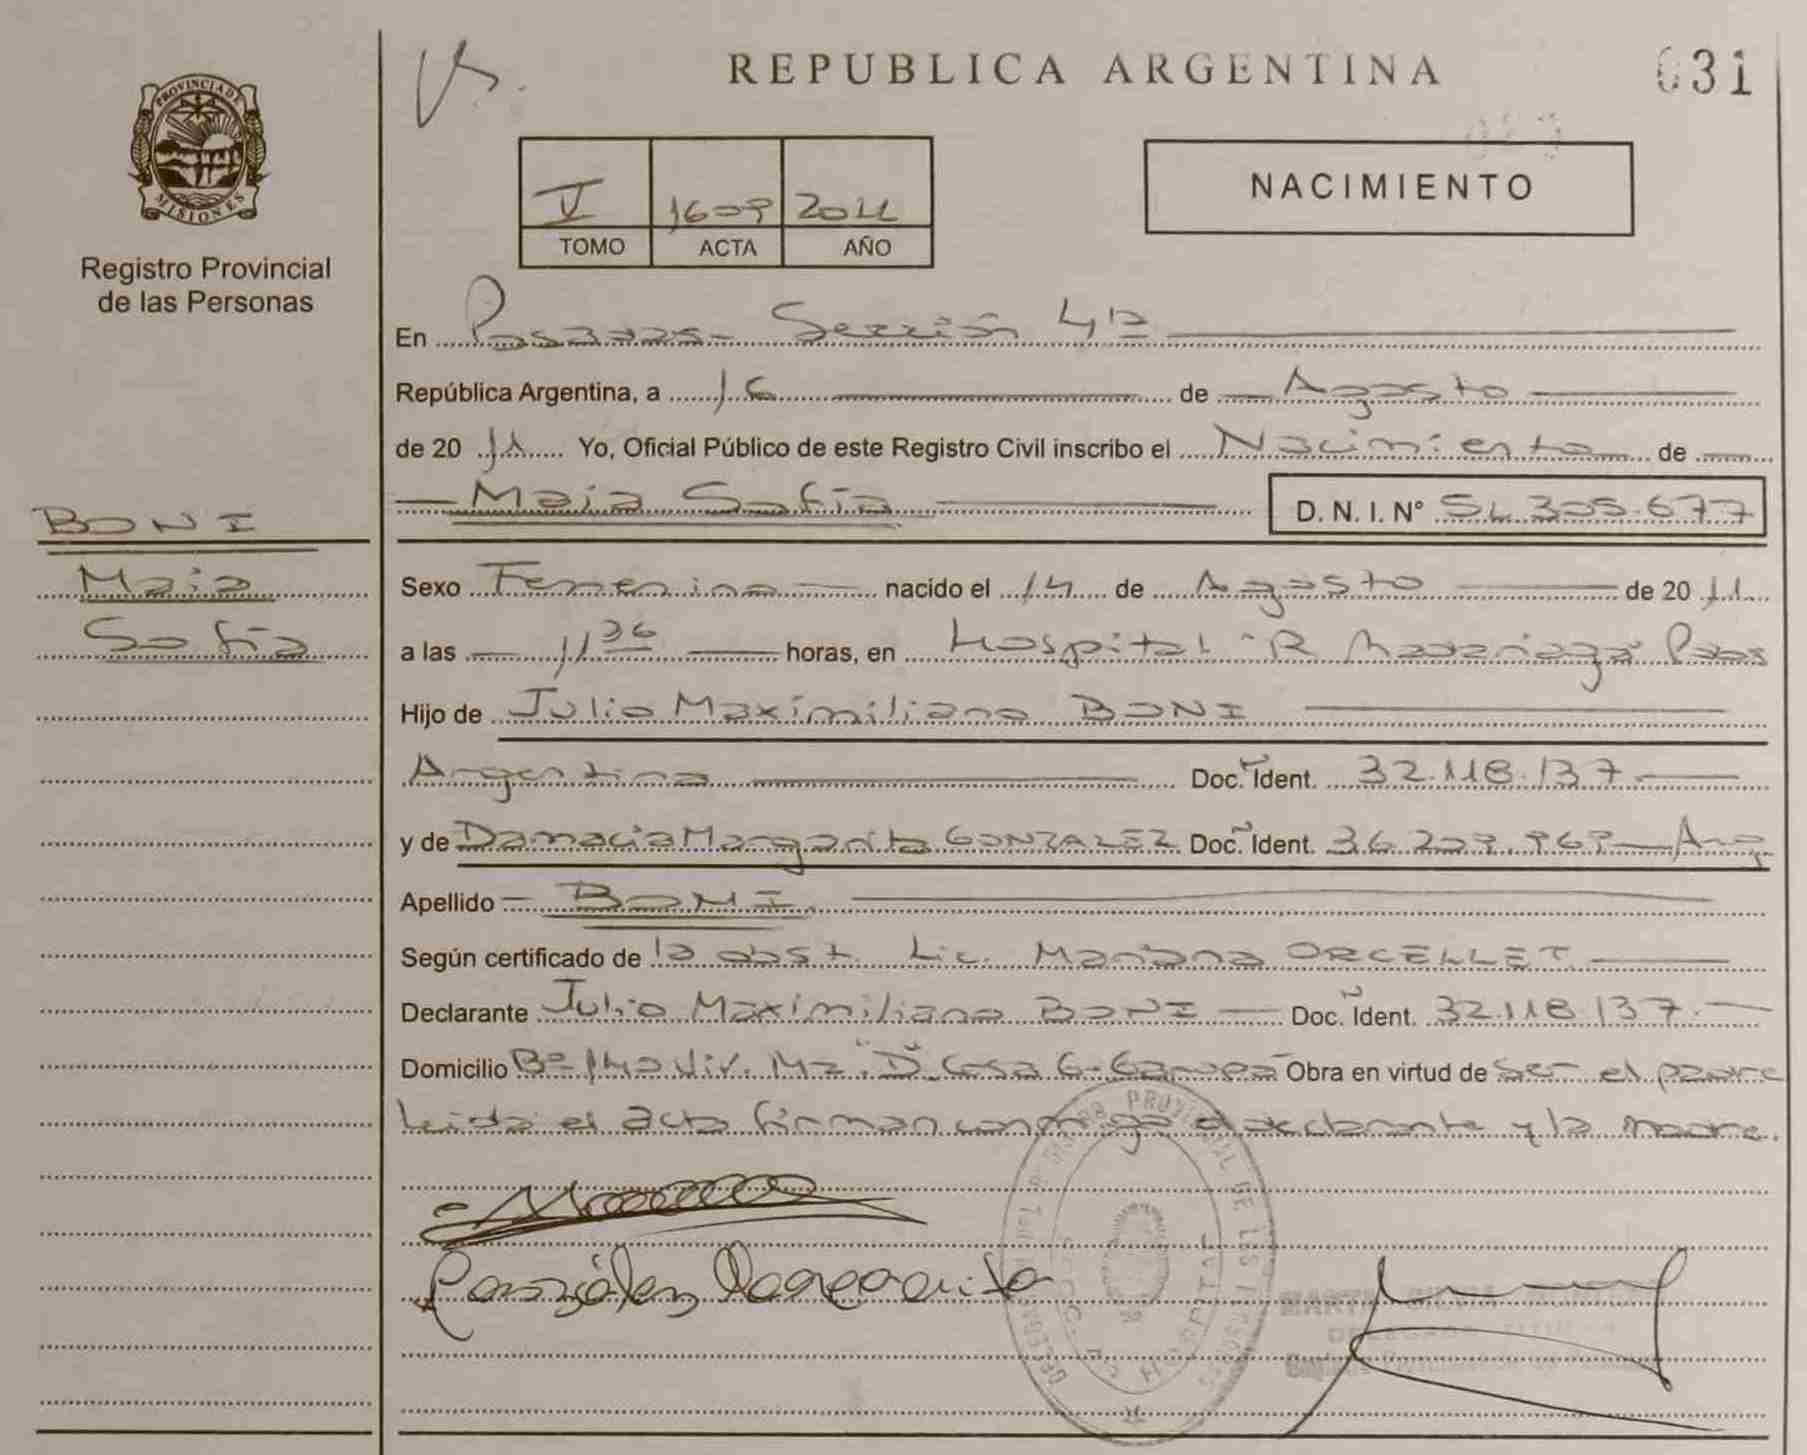 REPUBLICA ARGENTINA
031
PROVINCIA DE
MISIONES
Registro Provincial
de las Personas
V 1609 2011
TOMO ACTA AÑO
NACIMIENTO
En Posadas - Sección 4ta
República Argentina, a 16 de Agosto
de 20 11 Yo, Oficial Público de este Registro Civil inscribo el Nacimiento de
Maia Sofía D. N. I. N° 51.305.677
BONI
Maia
Sofía
Sexo Femenino nacido el 14 de Agosto de 20 11
a las 11 36 horas, en Hospital R Madariaga Pdas
Hijo de Julio Maximiliano BONI
Argentina Doc. Ident. 32.118.137
y de Damacia Margarita GONZALEZ Doc. Ident. 36.209.969 - Arg
Apellido BONI
Según certificado de la obst. Lic. Mariana ORCELLET
Declarante Julio Maximiliano BONI Doc. Ident. 32.118.137
Domicilio Bº 140 Viv. Mz "D" Casa 6 - Garupá Obra en virtud de ser el padre
Leida el acta firman conmigo el declarante y la madre.
González Margarita